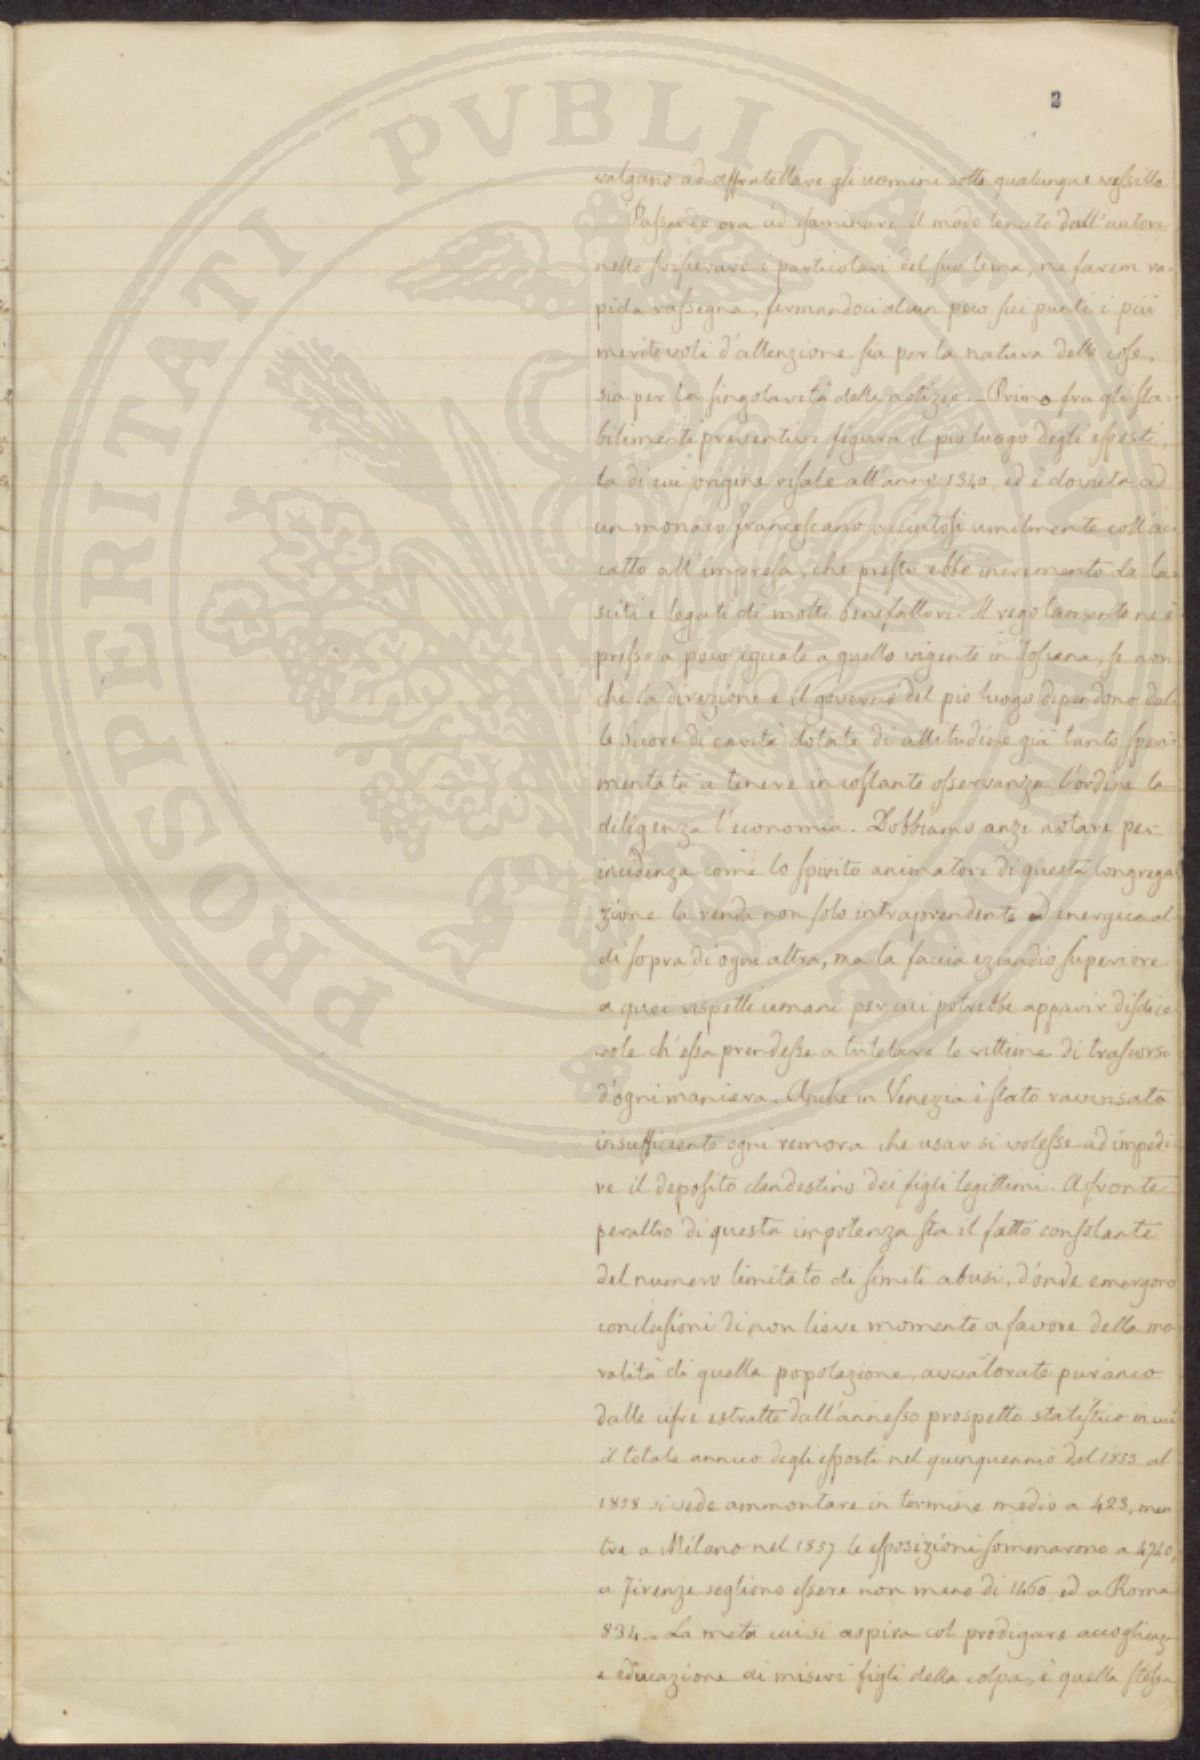 2
valgano ad affratellare gli uomini sotto qualunque vessillo
Passando ora ad esaminare il modo tenuto dall'autore
nello sviscerare i particolari del suo tema, ne farem ra-
pida rassegna, fermandoci alcun poco sui punti i più
meritevoli d'attenzione sia per la natura delle cose,
sia per la singolarità delle notizie. – Primo fra gli sta-
bilimenti preventivi figura il pio luogo degli esposti,
la di cui origine risale all'anno 1340, ed è dovuta ad
un monaco francescano, umilmente coll'ac-
catto all'impresa, che presto ebbe incremento da la-
sciti e legati di molti benefattori. Il regolamento ne è
presso a poco eguale a quello vigente in Toscana, se non
che la direzione e il governo del pio luogo dipendono dal-
le suore di carità dotate di attitudine già tanto speri-
mentata a tenere in costante osservanza l'ordine la
diligenza l'economia. Dobbiamo anzi notare per
incidenza come lo spirito animatore di questa congrega-
zione la renda non solo intraprendente ed energica al
di sopra di ogni altra, ma la faccia eziandio superiore
a quei rispetti umani per cui potrebbe apparir disdice-
vole ch'essa prendesse a tutelare le vittime di trascorsi
d'ogni maniera. Anche in Venezia è stato ravvisato
insufficiente ogni remora che usar si volesse ad impedi-
re il deposito clandestino dei figli legittimi. A fronte
peraltro di questa impotenza sta il fatto consolante
del numero limitato di simili abusi, d'onde emergono
conclusioni di non lieve momento a favore della mo-
ralità di quella popolazione, avvalorate pur anco
dalle cifre estratte dall'annesso prospetto statistico in cui
il totale annuo degli esposti nel quinquennio del 1853 al
1858 si vede ammontare in termine medio a 423, men-
tre a Milano nel 1857 le esposizioni sommarono a 4740,
a Firenze sogliono essere non meno di 1460, ed a Roma
834. – La meta cui si aspira col prodigare accoglienza
e educazione ai miseri figli della colpa, è quella stessa
PROSPERITATI PVBLICAE